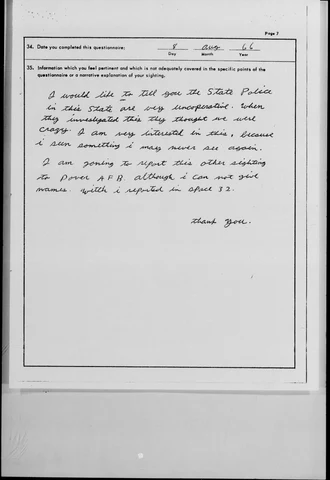 Page 7
34. Date you completed this questionnaire: 8 aug 66
Day Month Year
35. Information which you feel pertinent and which is not adequately covered in the specific points of the
questionnaire or a narrative explanation of your sighting.
I would like to tell you the State Police
in this State are very uncoperative. when
they investigated this they thought we were
crazy. I am very interested in this, because
i seen something i may never see again.
I am going to report this other sighting
to Dover AFB although i can not give
names. witch i reported in space 32.
thank you.